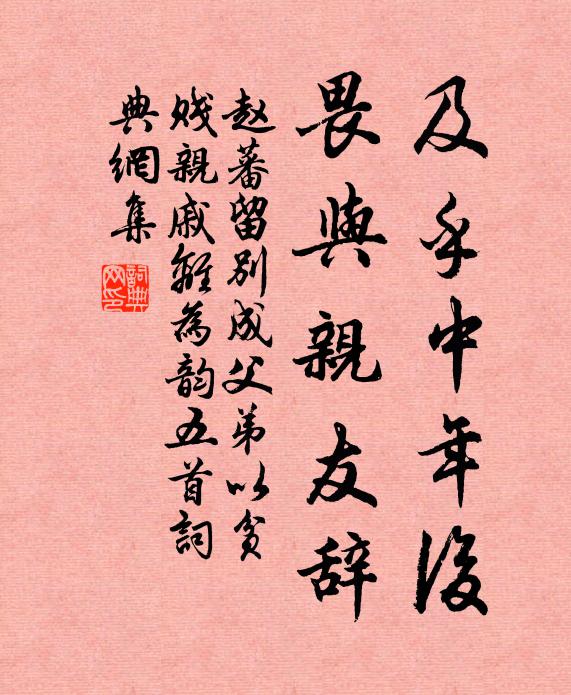 及乎中年後
畏與親友辞
赵蕃留别成父弟以贫
贱親戚離為韵五首詞
典網集
詞典网印